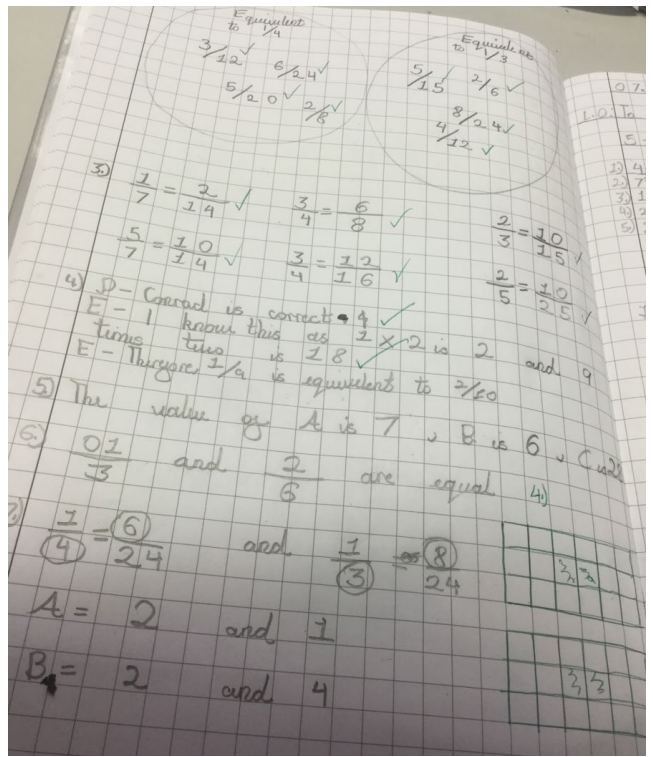 Equivalent to 1/4
3/12 ✓ 6/24 ✓
5/20 ✓ 2/8 ✓
Equivalent to 1/3
5/15 ✓ 2/6 ✓
8/24 ✓
4/12 ✓
3.) 1/7 = 2/14 ✓ 3/4 = 6/8 ✓ 2/3 = 10/15 ✓
5/7 = 10/14 ✓ 3/4 = 12/16 ✓ 2/5 = 10/25 ✓
4) D - Conrad is correct ✓
E - I know this as 1 x 2 is 2 and 9
times two is 18 ✓
E - Therefore, 1/9 is equivalent to 2/10
5) The value of A is 7, B is 6, C is 21
6.) 01/3 and 2/6 are equal
4.)
7.) 1/4 = 6/24 and 1/3 = 8/24
A = 2 and 1
B = 2 and 4
07.
L.O: To
5
1) 4
2) 7
3) 1
4) 2
5)